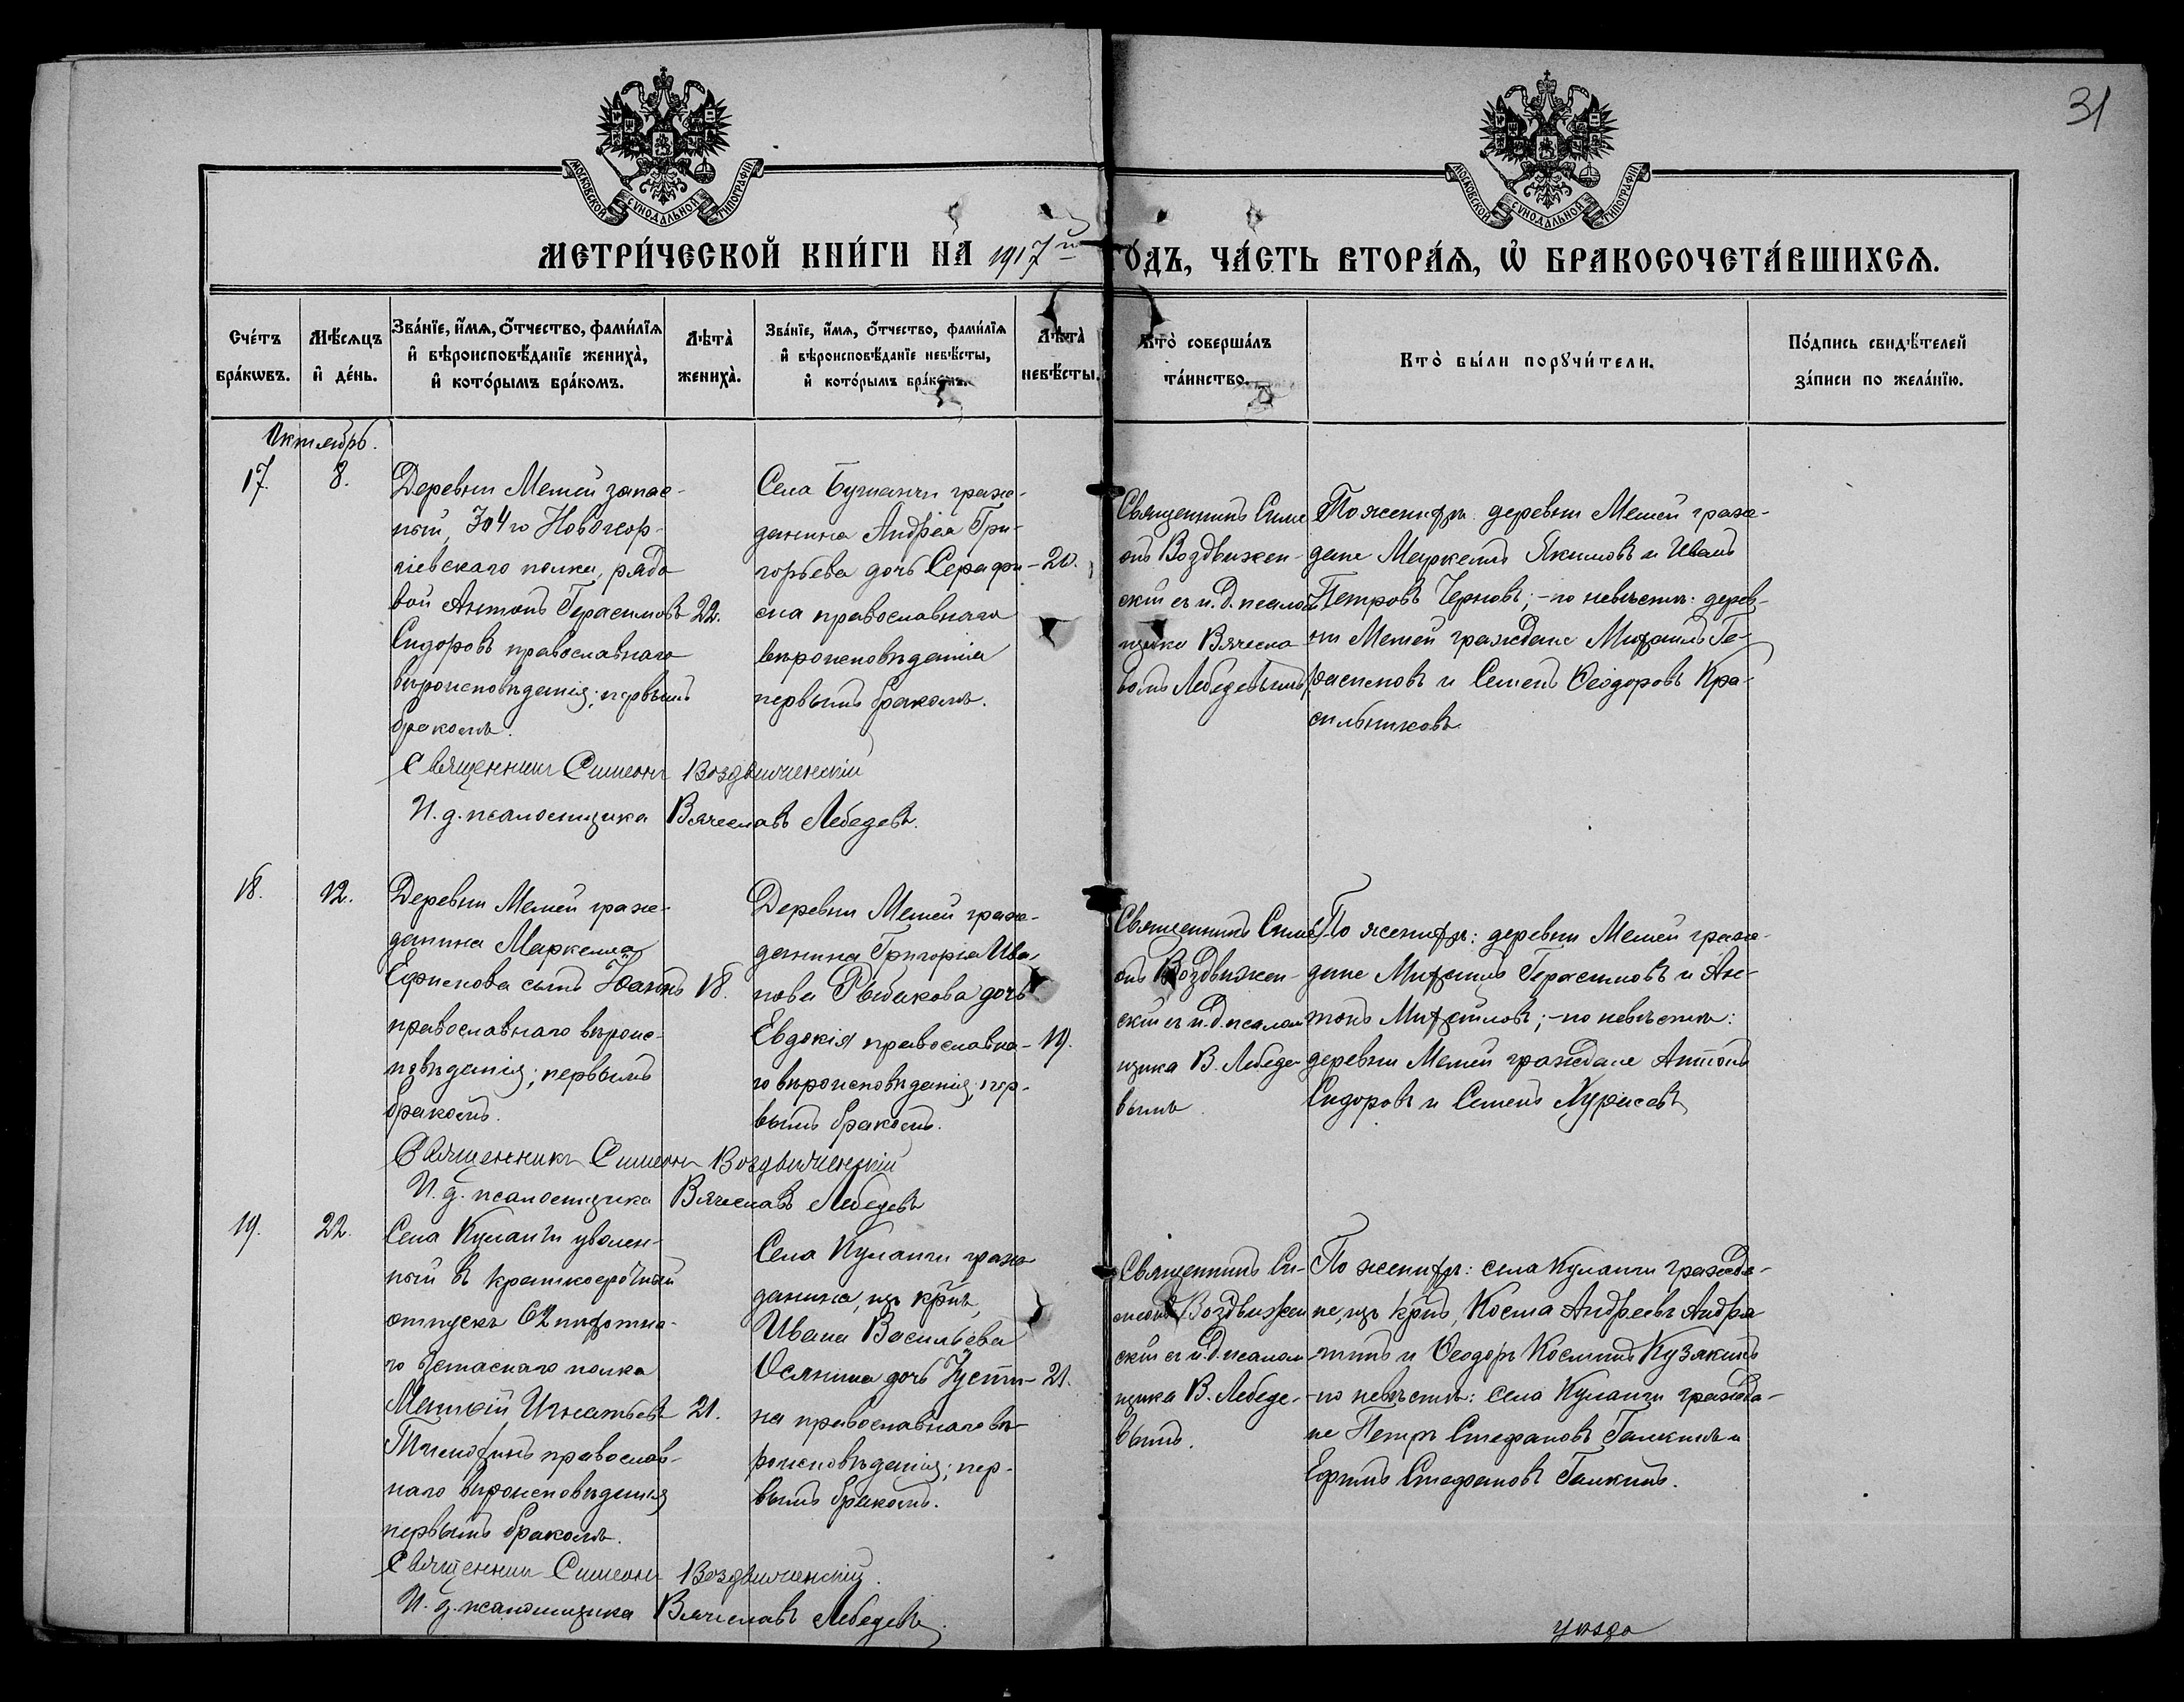 31
МОСКОВСКОЙ СѴНОДАЛЬНОЙ ТИПОГРАФІИ.
МОСКОВСКОЙ СѴНОДАЛЬНОЙ ТИПОГРАФІИ.
МЕТРИ́ЧЕСКОЙ КНИ́ГИ НА 1917й
ГО́ДЪ, ЧА́СТЬ ВТОРА́Ѧ, Ѡ БРАКОСОЧЕТА́ВШИХСѦ.
Сче́тъ
бра́кѡвъ.
Мѣ́сѧцъ
и҆ де́нь.
Зва́нїе, и҆́мѧ, ѻ҆́тчество, фами́лїѧ
и҆ вѣроисповѣ́данїе жениха̀,
и҆ кото́рымъ бра́комъ.
Лѣта̀
жениха̀.
Зва́нїе, и҆́мѧ, ѻ҆́тчество, фами́лїѧ
и҆ вѣроисповѣ́данїе невѣ́сты,
и҆ кото́рымъ бра́комъ.
Лѣта̀
невѣ́сты.
Кто̀ соверша́лъ
та́инство.
Кто̀ бы́ли порꙋчи́тели.
По́дпись свидѣ́телей
за́писи по жела́нїю.
Октябрь.
17.
8.
Деревни Мемей запас-
ный, 304го Новогеор-
гіевскаго полка, рядо
вой Антонъ Герасимовъ
Сидоровъ православнаго
вѣроисповѣданія; первымъ
бракомъ.
22.
Села граж-
данина Андрея Гри-
горьева дочь Серафи-
ма православнаго
вѣроисповѣданія
первымъ бракомъ.
20.
Священникъ Симе
онъ Воздвижен-
скій съ и.д. псалом
щика Вячесла
вомъ Лебедевымъ
По женихѣ: деревни Мемей граж-
дане Маркеллъ Якимовъ и Иванъ
Петровъ Черновъ; - по невѣстѣ: дерев-
ни Мемей граждане Михаилъ Ге-
расимовъ и Семенъ Ѳеодоровъ Кра-
сильниковъ.
Священникъ Симеонъ Воздвиженскій
И. д. псаломщика Вячеславъ Лебедевъ.
18.
12.
Деревни Мемей граж-
данина Маркелла
Ефимова сынъ Іоаннъ
православнаго вѣроис-
повѣданія; первымъ
бракомъ.
18.
Деревни Мемей граж-
данина Григорія Ива-
нова Рыбакова дочь
Евдокія православна-
го вѣроисповѣданія; пер-
вымъ бракомъ.
19.
Священникъ Симе
онъ Воздвижен-
скій съ и.д. псалом
щика В. Лебеде-
вымъ.
По женихѣ: деревни Мемей граж-
дане Михаилъ Герасимовъ и Ан-
тонъ Михайловъ; - по невѣстѣ:
деревни Мемей граждане Антонъ
Сидоровъ и Семенъ
Священникъ Симеонъ Воздвиженскій
И. д. псаломщика Вячеславъ Лебедевъ
19.
22.
Села Куланги уволен-
ный въ краткосрочный
отпускъ 62 пѣхотна-
го полка
Матѳій Игнатьевъ
Тимохинъ православ-
наго вѣроисповѣданія
первымъ бракомъ.
21.
Села Куланги граж
данина, изъ кр-нъ,
Ивана Васильева
дочь Іусти-
на православнаго вѣ-
роисповѣданія; пер-
вымъ бракомъ.
21.
Священникъ Си-
меонъ Воздвижен
скій съ и.д. псалом
щика В. Лебеде-
вымъ.
По женихѣ: села Куланги гражда-
не, изъ кр-нъ, Косма Андреевъ
и Ѳеодоръ Косминъ Кузякинъ
- по невѣстѣ: села Куланги гражда-
не Петръ Стефановъ Галкинъ и
Ефимъ Стефановъ Галкинъ.
Священникъ Симеонъ Воздвиженскій.
И. д. псаломщика Вячеславъ Лебедевъ.
уѣзда